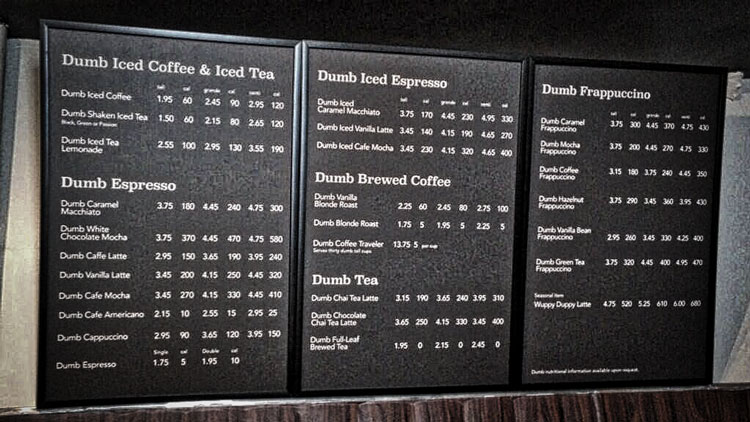 Dumb Iced Coffee & Iced Tea
tall cal grande cal venti cal
Dumb Iced Coffee 1.95 60 2.45 90 2.95 120
Dumb Shaken Iced Tea 1.50 60 2.15 80 2.65 120
Black, Green or Passion
Dumb Iced Tea
Lemonade 2.55 100 2.95 130 3.55 190
Dumb Espresso
Dumb Caramel
Macchiato 3.75 180 4.45 240 4.75 300
Dumb White
Chocolate Mocha 3.75 370 4.45 470 4.75 580
Dumb Caffe Latte 2.95 150 3.65 190 3.95 240
Dumb Vanilla Latte 3.45 200 4.15 250 4.45 320
Dumb Cafe Mocha 3.45 270 4.15 330 4.45 410
Dumb Cafe Americano 2.15 10 2.55 15 2.95 25
Dumb Cappuccino 2.95 90 3.65 120 3.95 150
Single cal Double cal
Dumb Espresso 1.75 5 1.95 10
Dumb Iced Espresso
tall cal grande cal venti cal
Dumb Iced
Caramel Macchiato 3.75 170 4.45 230 4.95 330
Dumb Iced Vanilla Latte 3.45 140 4.15 190 4.65 270
Dumb Iced Cafe Mocha 3.45 230 4.15 320 4.65 400
Dumb Brewed Coffee
Dumb Vanilla
Blonde Roast 2.25 60 2.45 80 2.75 100
Dumb Blonde Roast 1.75 5 1.95 5 2.25 5
Dumb Coffee Traveler 13.75 5 per cup
Serves thirty dumb tall cups
Dumb Tea
Dumb Chai Tea Latte 3.15 190 3.65 240 3.95 310
Dumb Chocolate
Chai Tea Latte 3.65 250 4.15 330 3.45 400
Dumb Full-Leaf
Brewed Tea 1.95 0 2.15 0 2.45 0
Dumb Frappuccino
tall cal grande cal venti cal
Dumb Caramel
Frappuccino 3.75 300 4.45 370 4.75 430
Dumb Mocha
Frappuccino 3.75 200 4.45 270 4.75 330
Dumb Coffee
Frappuccino 3.15 180 3.75 240 4.45 350
Dumb Hazelnut
Frappuccino 3.75 290 3.45 360 3.95 430
Dumb Vanilla Bean
Frappuccino 2.95 260 3.45 330 4.25 400
Dumb Green Tea
Frappuccino 3.75 320 4.45 400 4.95 470
Seasonal Item
Wuppy Duppy Latte 4.75 520 5.25 610 6.00 680
Dumb nutritional information available upon request.